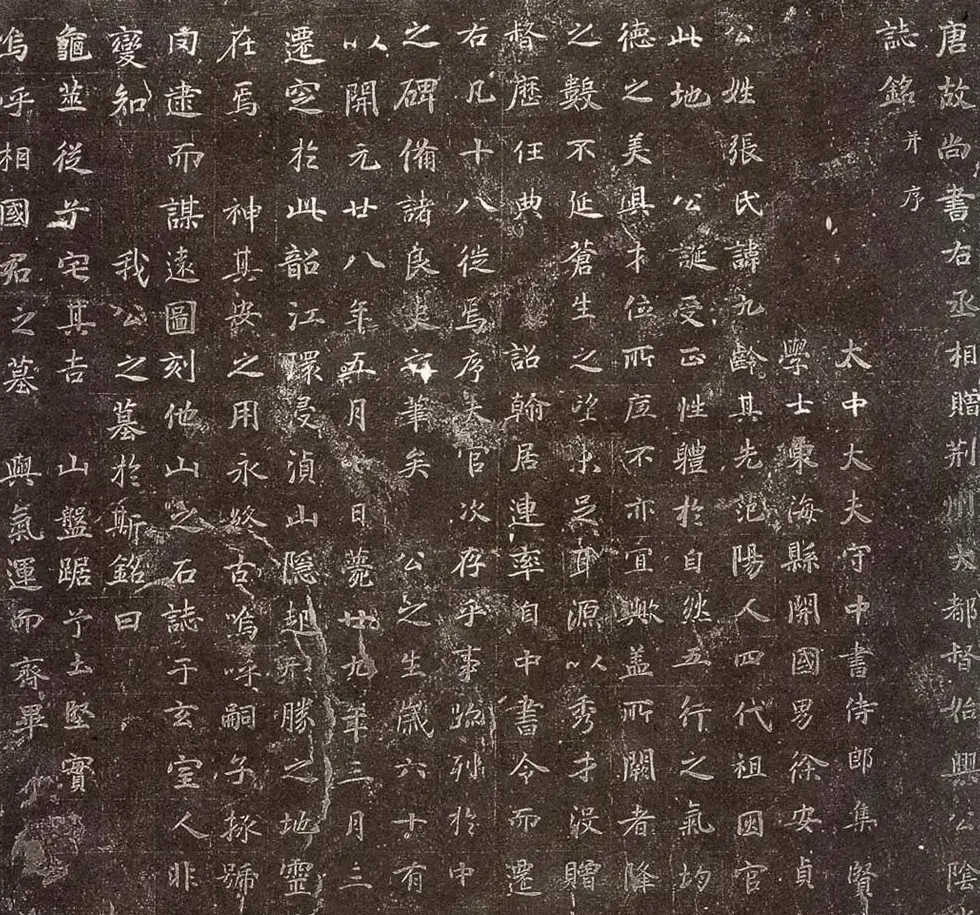 唐故尚書右丞相贈荊州大都督始興公陰
誌銘并序
太中大夫守中書侍郎集賢
學士東海縣開國男徐安貞
公姓張氏諱九齡其先范陽人四代祖因官
此地公誕受正性體於自然五行之氣均
德之美具才位所底不亦宜歟蓋所闕者降
之數不延蒼生之望未足耳源以秀才沒贈
督歷任典詔翰居連率自中書令而遷
右凡十八徙焉序夫官次存乎事跡列於中
之碑備諸良史筆矣公之生歲六十有
以開元廿八年五月日薨廿九年三月三
遷窆於此韶江環浸湞山隱起形勝之地靈
在焉神其安之用永終古嗚呼嗣子拯號
罔逮而謀遠圖刻他山之石誌于玄室人非
變知我公之墓於斯銘曰
龜筮從兮宅其吉山盤踞兮土堅實
嗚乎相國君之墓與氣運而齊畢